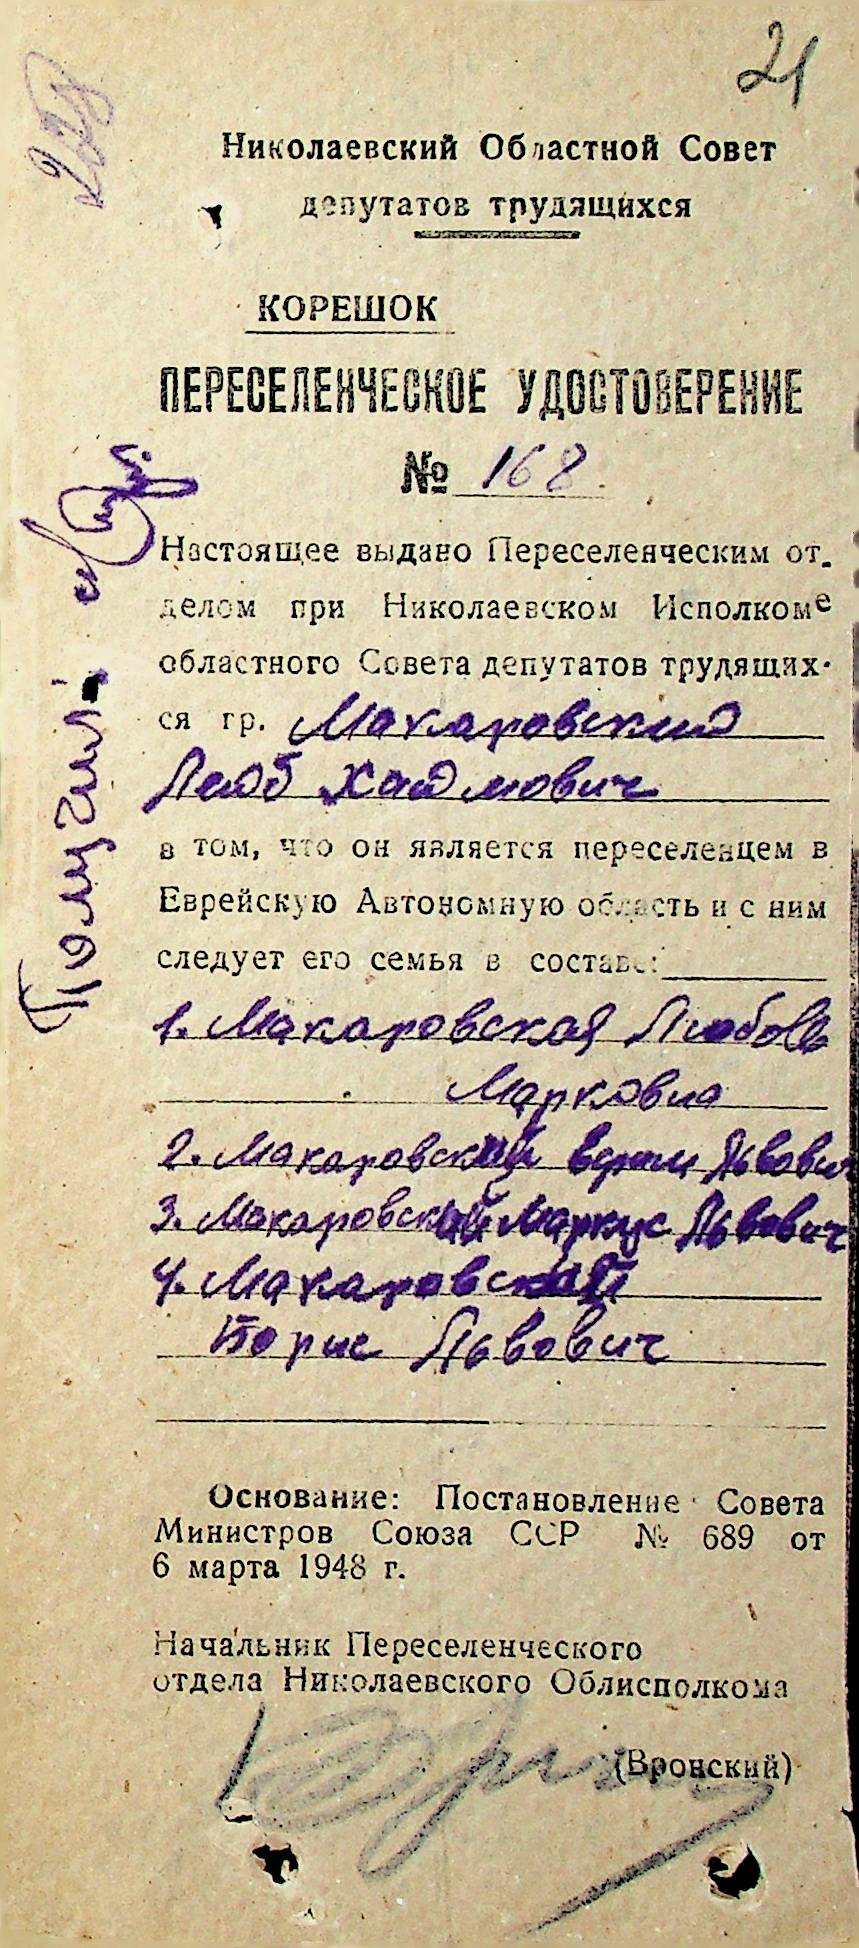 21
278
Николаевский Областной Совет
депутатов трудящихся
КОРЕШОК
ПЕРЕСЕЛЕНЧЕСКОЕ УДОСТОВЕРЕНИЕ
№ 168
Настоящее выдано Переселенческим от-
делом при Николаевском Исполкоме
областного Совета депутатов трудящих-
ся гр. Макаровский
Лейб Хаймович
в том, что он является переселенцем в
Еврейскую Автономную область и с ним
следует его семья в составе:
1. Макаровская Любовь
Марковна
2. Макаровский Львович
3. Макаровский Маркус Львович
4. Макаровский
Борис Львович
Основание: Постановление Совета
Министров Союза ССР № 689 от
6 марта 1948 г.
Начальник Переселенческого
отдела Николаевского Облисполкома
(Вронский)
Получил